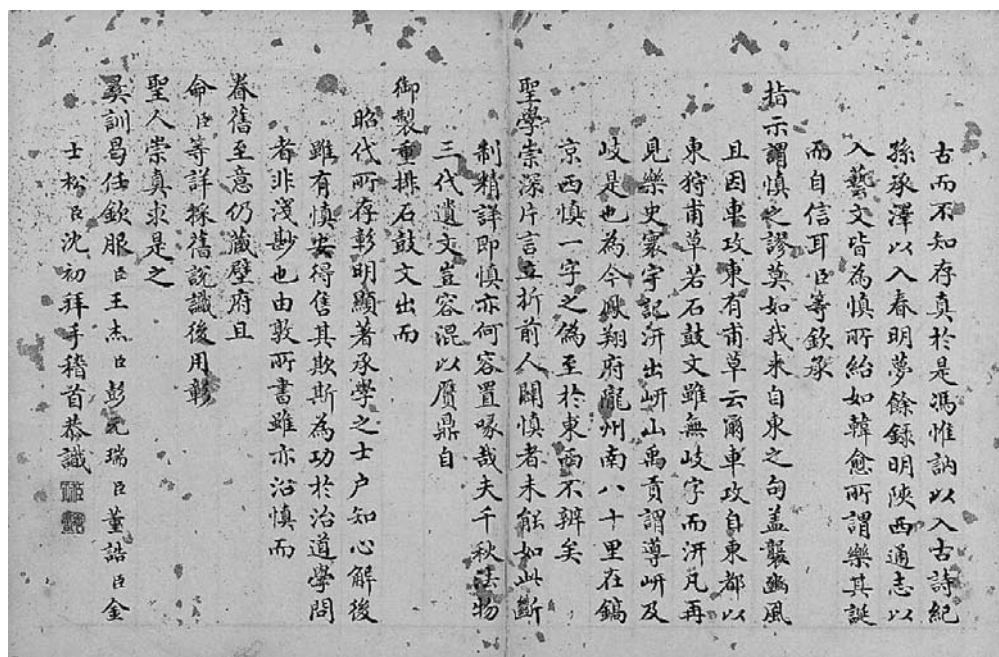 古而不知存真於是馮惟訥以入古詩紀
孫承澤以入春明夢餘錄明陝西通志以
入藝文皆為慎所紿如韓愈所謂樂其誕
而自信耳臣等欽承
指示謂慎之謬莫如我来自東之句盖襲豳風
且因車攻東有甫草云爾車攻自東都以
東狩甫草若石鼓文雖無岐字而汧凡再
見樂史寰宇記汧出岍山禹貢謂導岍及
岐是也為今鳳翔府隴州南八十里在鎬
京西慎一字之偽至於東西不辨矣
聖學崇深片言立折前人闢慎者未能如此斷
制精詳即慎亦何容置喙哉夫千秋法物
三代遺文豈容混以贋鼎自
御製重排石鼓文出而
昭代所存彰明顯著承學之士户知心解後
雖有慎安得售其欺斯為功於治道學問
者非淺尠也由敦所書雖亦沿慎而
眷舊至意仍藏壁府且
命臣等詳採舊說識後用彰
聖人崇真求是之
彛訓曷任欽服臣王杰臣彭元瑞臣董誥臣金
士松臣沈初拜手稽首恭識